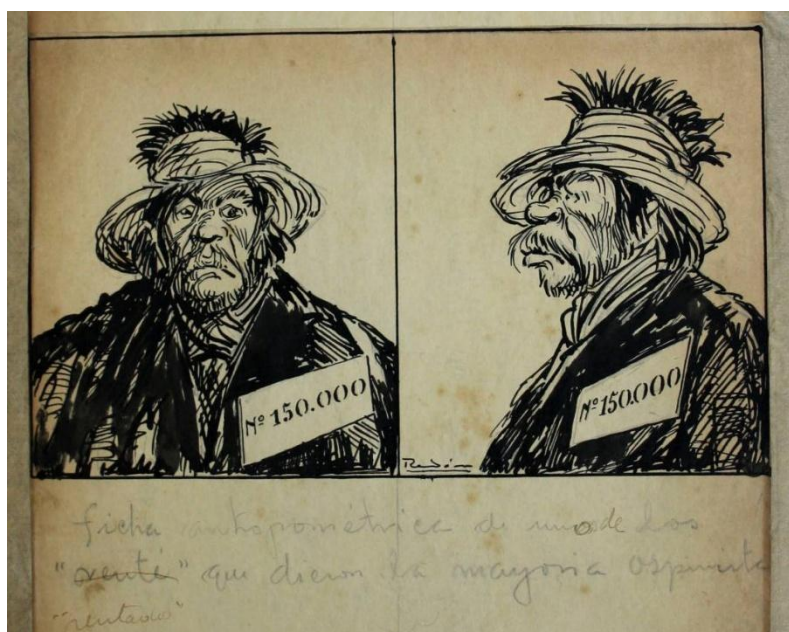 Nº 150.000
Nº 150.000
Rendón
ficha antropométrica de uno de los
"gente" que dieron la mayoria ospinista
"rentado"